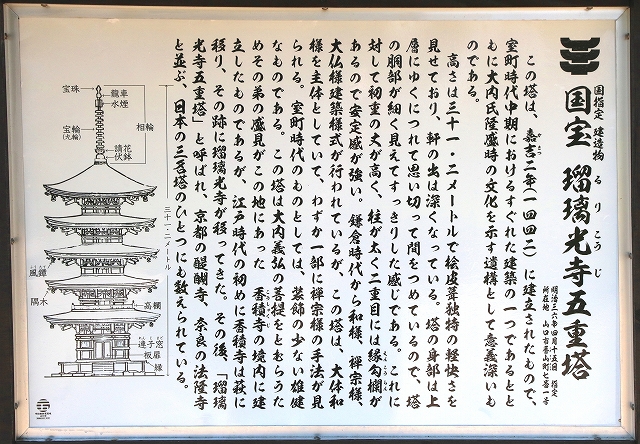 国指定 建造物
国宝 瑠璃光寺五重塔
るりこうじ
明治三六年四月十五日 指定
所在地 山口市香山町七番一号
この塔は、嘉吉二年(一四四二)に建立されたもので、
かきつ
室町時代中期におけるすぐれた建築の一つであるとと
もに大内氏隆盛時の文化を示す遺構として意義深いも
のである。
高さは三十一・二メートルで桧皮葺独特の軽快さを
見せており、軒の出は深くなっている。塔の身部は上
層にゆくにつれて思い切って間をつめているので、塔
の胴部が細く見えてすっきりした感じである。これに
対して初重の丈が高く、柱が太く二重目には縁勾欄が
あるので安定感が強い。鎌倉時代から和様、禅宗様、
大仏様建築様式が行われているが、この塔は、大体和
様を主体としていて、わずか一部に禅宗様の手法が見
られる。室町時代のものとしては、装飾の少ない雄健
なものである。この塔は大内義弘の菩提をとむらうた
めその弟の盛見がこの地にあった香積寺の境内に建
立したものであるが、江戸時代の初めに香積寺は萩に
移り、その跡に瑠璃光寺が移ってきた。その後、「瑠璃
光寺五重塔」と呼ばれ、京都の醍醐寺、奈良の法隆寺
と並ぶ、日本の三名塔のひとつにも数えられている。
宝珠
竜車
水煙
相輪
宝輪
(九輪)
請花
伏鉢
三十一・二メートル
風鐸
隅木
高欄
連子窓
板扉
縁